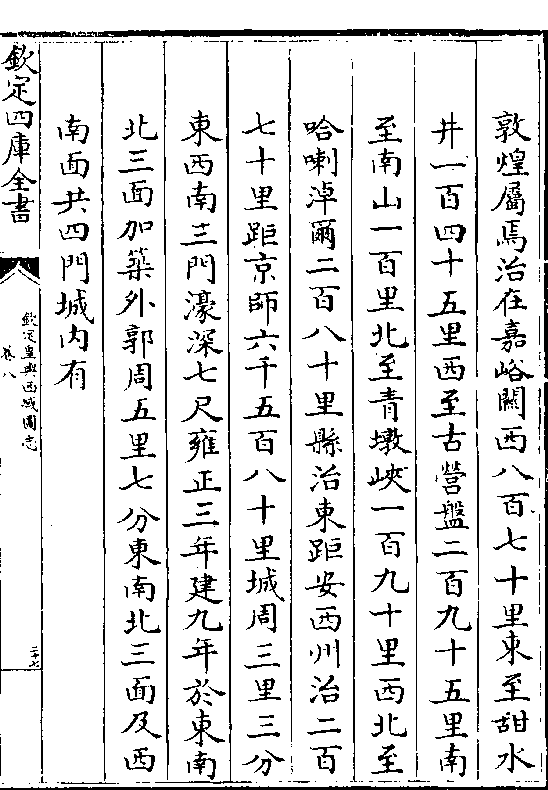 敦煌屬焉治在嘉峪關西八百七十里東至甜水
井一百四十五里西至古營盤二百九十五里南
至南山一百里北至青墩峽一百九十里西北至
哈喇淖爾二百八十里縣治東距安西州治二百
七十里距京師六千五百八十里城周三里三分
東西南三門濠深七尺雍正三年建九年於東南
北三面加築外郭周五里七分東南北三面及西
南面共四門城内有
欽定四庫全書
欽定皇輿西域圖志
卷八
二十七